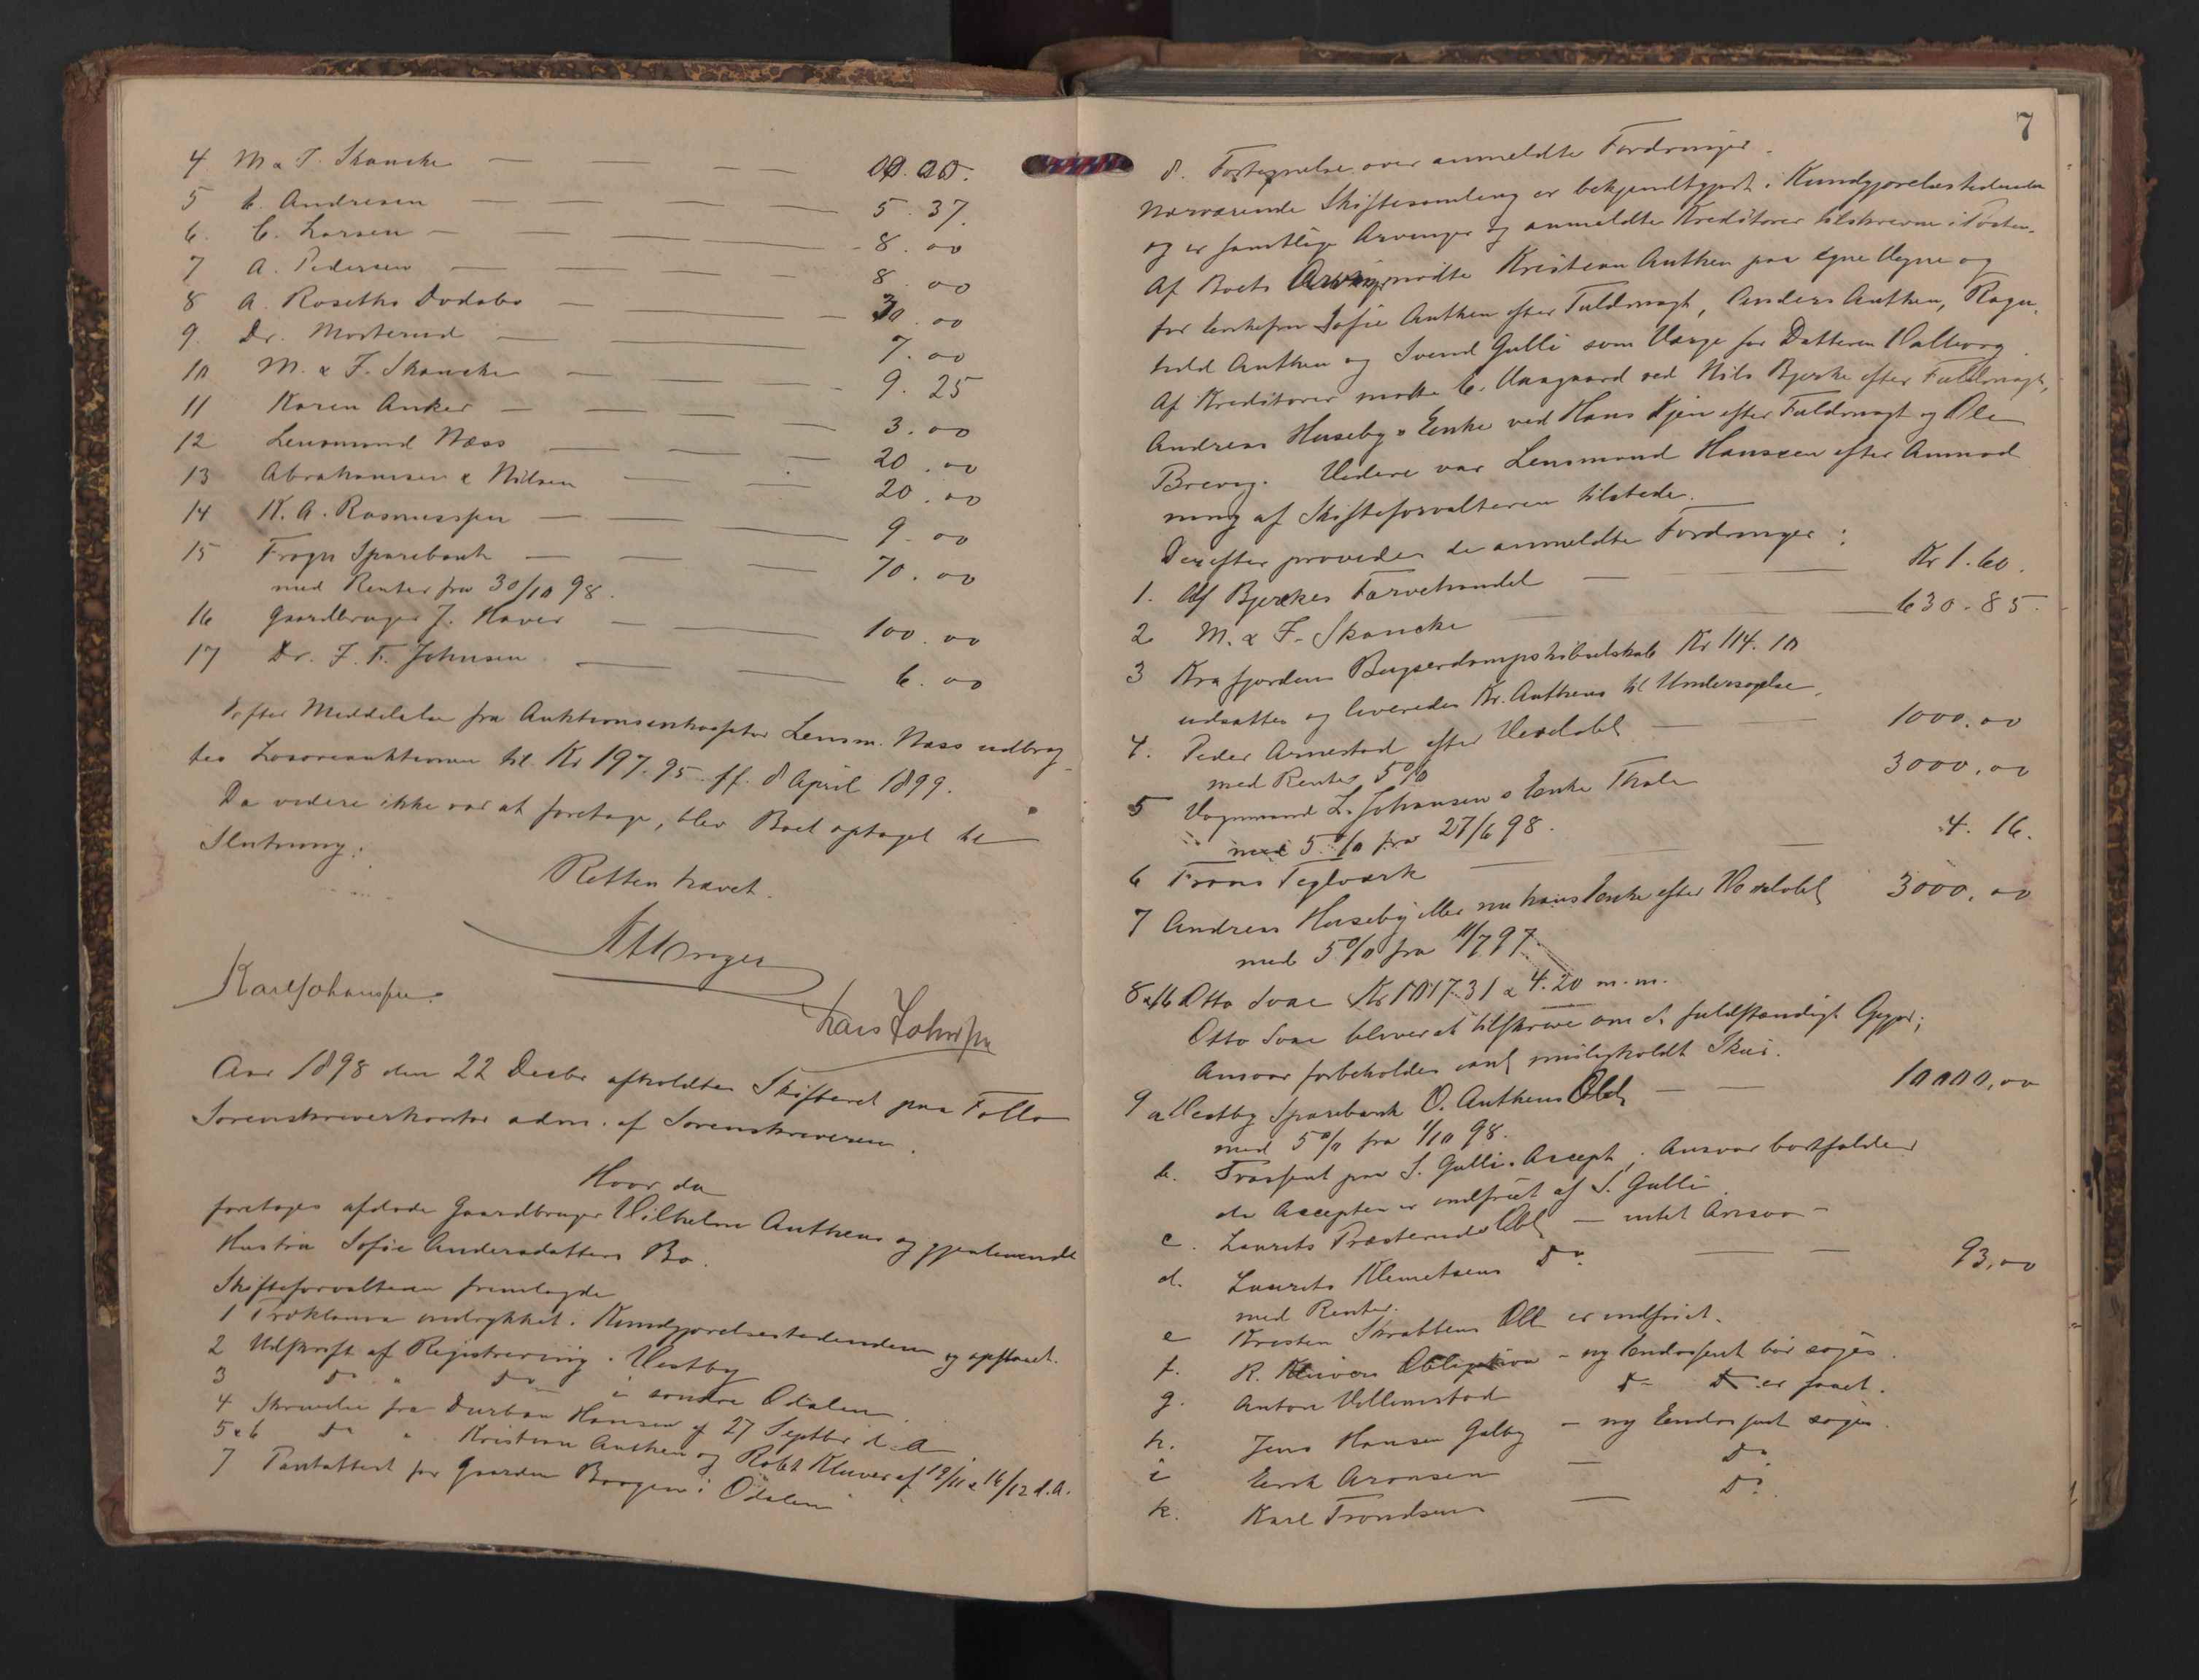 4 M & F. Skancke — — — —
5 C. Andresen — — — — 5.37.
6. C. Larsen — — — 8.00
7 A. Pedersen — — — 8.00
8 A. Roseths Dødsbo — — —
9. Dr. Mosterud — — — 7.00
10 M. & F. Skancke — — — 9.25
11 Karen Anker — — — 3.00
12 Lensmand Næss — — 20.00
13 Abrahamsen & Nilsen — — 20.00
14 K. A. Rasmussen — — — 9.00
15 Frogn Sparebank — — — 70.00
med Renter fra 30/10 98.
16 Gaardbruger J. Haver — — 100.00
17 Dr. F. F. Johnsen — — 6.00
Efter Meddelelse fra Auktionsinkassator Lensm. Næss udbrag
tes Løsøreauktionen til Kr 197.95 ff. 8 April 1899.
Da videre ikke var at foretage, blev Boet optaget til
Slutning.
Retten hævet.
Karl Johansen.
Lars Johnsen
Aar 1898 den 22 Decbr afholdtes Skifteret paa Follo
Sorenskriverkontor adm. af Sorenskriveren.
Hvor da
foretages afdøde Gaardbruger Vilhelm Anthens og gjenlevende
Hustru Sofie Andersdatters Bo.
Skifteforvalteren fremlagde
1 Proklama indrykket i Kundgjørelsestidenden og opslaaet.
2 Udskrift af Registrering i Vestby
3 do " do i søndre Odalen.
4 Skrivelse fra Durban Hansen af 27 Septbr d. A
5 & 6 do " Kristian Anthen og Robt Kluver af 19/11 & 16/12 d. A.
7 Pantattest for Gaarden Borgen i Odalen
7
8. Fortegnelse over anmeldte Fordringer.
Nærværende Skiftesamling er bekjendtgjort i Kundgjørelsestidenden
og er samtlige Arvinger og anmeldte Kreditorer tilskrevne i Posten.
Af Boets Arving mødte Kristian Anthen paa egne Vegne og
for Enkefru Sofie Anthen efter Fuldmagt, Anders Anthen, Ragn-
hild Anthen og Svend Gulli som Værge for Datteren Valborg.
Af Kreditorer mødte C. Aasgaard ved Nils Bjerke efter Fuldmagt,
Andreas Huseby's Enke ved Hans Kjen efter Fuldmagt og Ole
Brevig. Videre var Lensmand Hanssen efter Anmod
ning af Skifteforvalteren tilstede.
Derefter prøvedes de anmeldte Fordringer:
1. Alf Bjerckes Farvehandel — — Kr 1.60.
2 M. & F. Skancke — — 630.85.
3 Krafjordens Bugserdampskibselskab Kr. 114.10
udsattes og leveredes Kr. Anthens til Undersøgelse.
4. Peder Arnestad efter Vexelobl — — 1000.00
med Renter 5%
5 Vognmand L. Johansens Enke Thale 3000.00
med 5% fra 27/6 98.
6 Frans Teglværk — — — 4.16.
7 Andreas Huseby eller nu hans Enke efter Vexelobl 3000.00
med 5% fra 11/7 97
8 Otto Svae & 4.20 m. m.
Otto Svae bliver at tilskrive om et fuldstændigt Opgjør;
Ansvar forbeholdes
9 a Vestby Sparebank O. Anthens Obl — — 10000,00
med 5% fra 1/10 98.
b. Trassent paa S. Gullis Accept. Ansvar bortfalder
da Accepten er indfriet af S. Gulli
c. Laurits Præsteruds Obl — intet Ansvar —
d. Laurits Klemetsens do — — 93,00
med Renter.
e Kristen Skrattens Obl er indfriet.
f. R. Kluvers Obligation — ny Endossent bør søges.
g. Anton Villumstad do do er faaet.
h. Jens Hansen Galby — ny Endossent søges.
i Enok Aronsen — do
k. Karl Trondsen — do